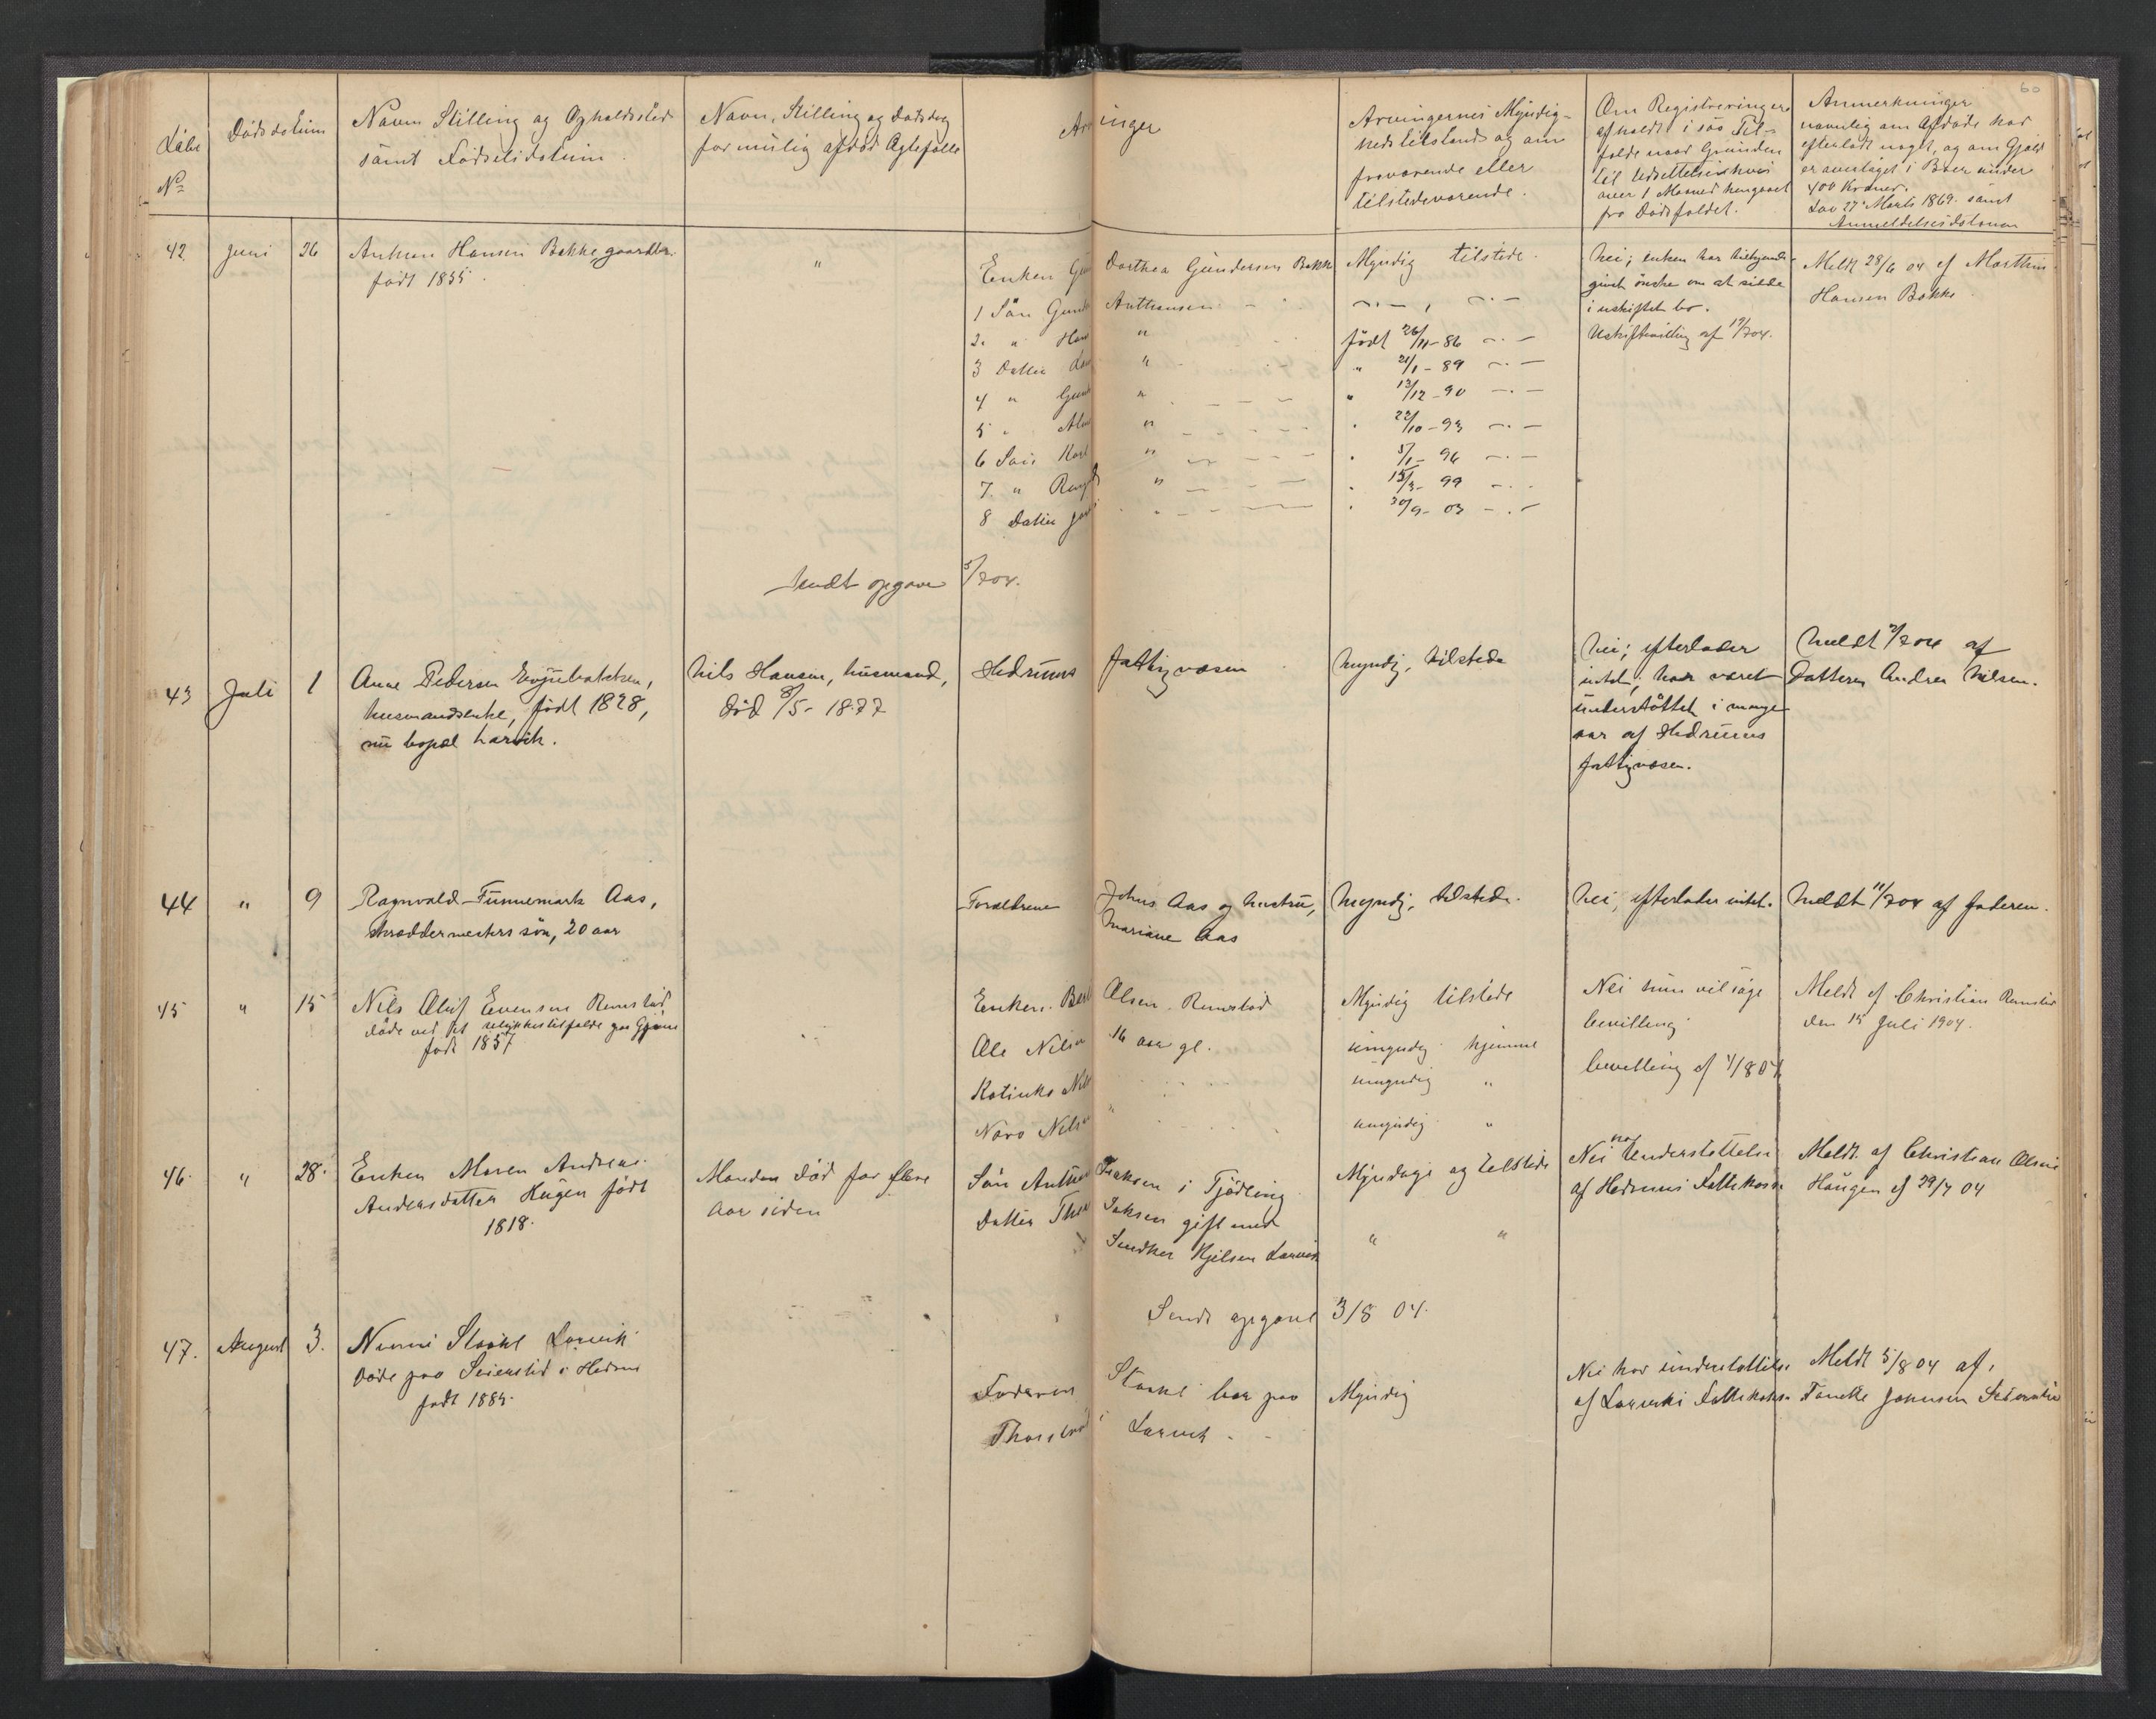 60
Løbe
No
Dødsdatum
Navn Stilling og Opholdssted
samt Fødselsdatum.
Navn, Stilling og Dødsdag
for mulig afdød Ægtefælle
Arvinger
Arvingernes Myndig-
hedstilstand og om
fraværende eller
tilstedeværende.
Om Registreringer
afholdt i saa Til-
fælde naar Grunden
til Udsættelsen hvis
over 1 Maaned hengaaet
fra Dødsfaldet.
Anmerkninger
navnlig om Afdøde har
efterladt noget, og om Gjæld
er overtaget i Boer under
400 Kroner.
Lov 27 Marts 1869. samt
Anmeldelsesdatoen
42 Juni 26 Anthon Hansen Bakke, gaardbr.
født 1855.
"
Enken Dorthea Gundersen Bakke
1 Søn Anthonsen
2. " "
3 Datter "
4 " "
5 "
6 Søn Karl "
7. " "
8 Datter
Myndig tilstede.
født 26/11-86
" 21/1-89
" 13/12-90
22/10-93
5/1-96
15/3-99
30/9-03
Nei; enken har tilkjende-
givet ønske om at sidde
i uskiftet bo.
Uskiftevilling af 19/7 04.
Meldt 28/6 04 af Marthin
Hansen Bakke
Sendt opgave 5/7 04.
43 Juli 1 Anne Pedersen
husmandsenke, født 1828,
nu bopæl Larvik.
Nils Hansen, husmand,
død 8/5-1877
Hedrums fattigvæsen
Myndig, tilstede
Nei; efterlader
intet; har været
understøttet i mange
aar af Hedrums
fattigvæsen.
Meldt 2/7 04 af
Datteren Andrea Nilsen.
44 " 9 Ragnvald Funnemark Aas,
skræddermesters søn, 20 aar
Forældrene Johns. Aas og hustru,
Mariane Aas
Myndig, tilstede.
Nei, efterlader intet.
Meldt 11/7 04 af faderen.
45 " 15 Nils Oluf Evensen Rimstad
døde ved et ulykkestilfælde paa
født 1857
Enken Olsen Rimstad
Ole Nilsen 16 aar gl.
Katinka
Nora Nilsen
Myndig tilstede
umyndig hjemme
umyndig "
umyndig "
Nei hun vil søge
bevilling
bevilling af 4/8 04
Meldt af Christian Rimstad
den 15 Juli 1904.
46. " 28. Enken Maren Andrea
Andersdatter Haugen født
1818.
Manden død for flere
Aar siden
Søn Anthon Isaksen i Tjødling
Datter Isaksen gift med
Kjelsen Larvik
Myndige og tilstede
" "
Nei har Understøttelse
af Hedrums Fattikasse
Meldt af Christian Olsen
Haugen af 29/7 04
Sendt opgave 3/8 04.
47. August 3. Larvik
døde paa i Hedrum
født 1884.
Faderen bor paa
i Larvik
Myndig
Nei har understøttelse
af Larviks Fattikasse
Meldt 5/8 04 af
Johnsen